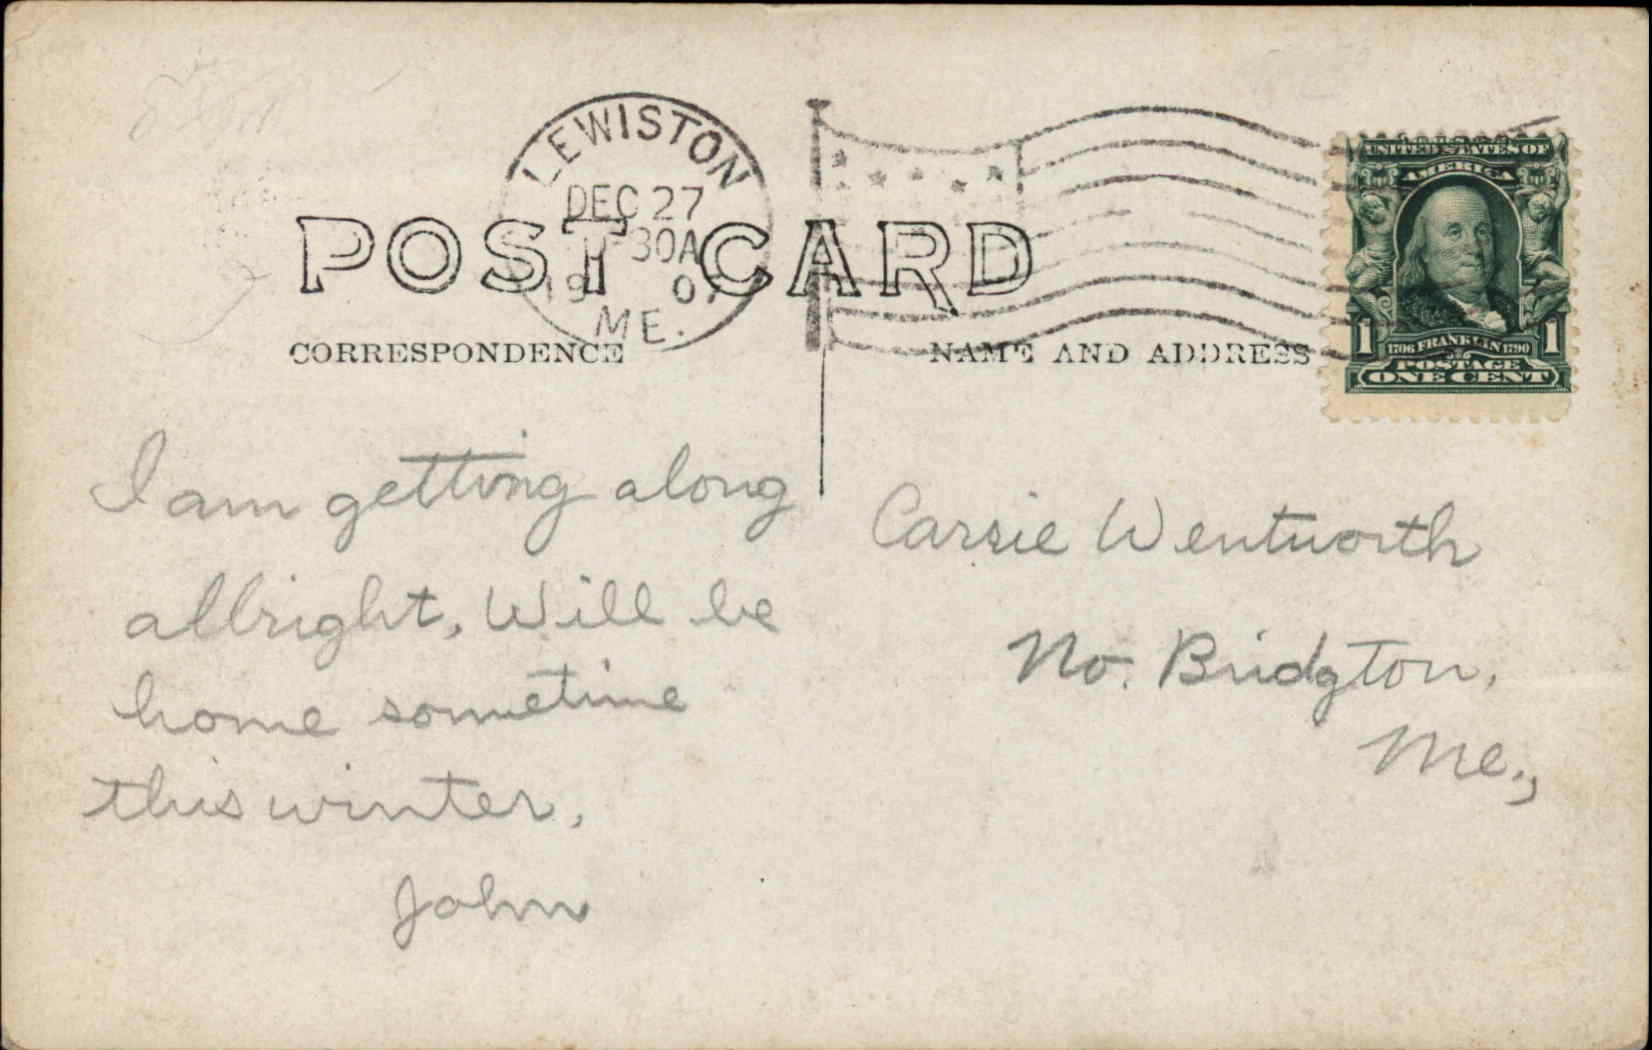 LEWISTON
DEC 27
30A
19 07
ME.
POST CARD
CORRESPONDENCE
NAME AND ADDRESS
UNITED STATES OF
AMERICA
1 1706 FRANKLIN 1790 1
POSTAGE
ONE CENT
I am getting along
allright, Will be
home sometime
this winter,
John
Carrie Wentworth
No. Bridgton,
Me.,